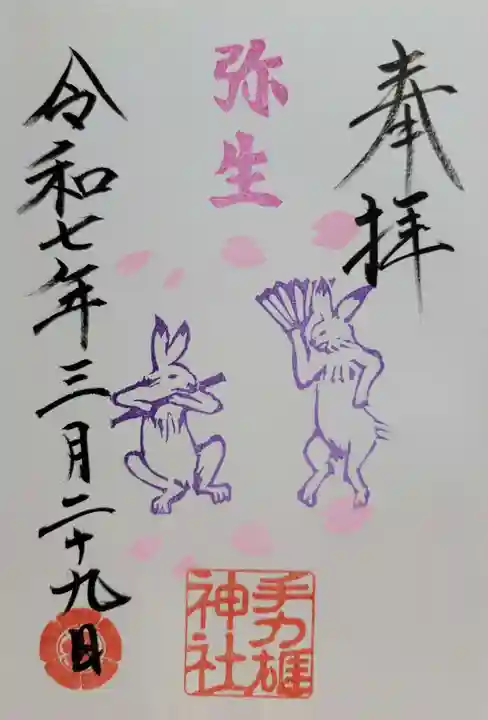 奉拝
弥生
手力雄
神社
令和七年三月二十九日